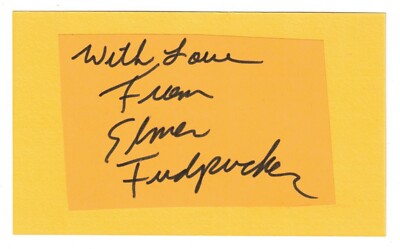 With Love
From
Elmer
Fudpucker